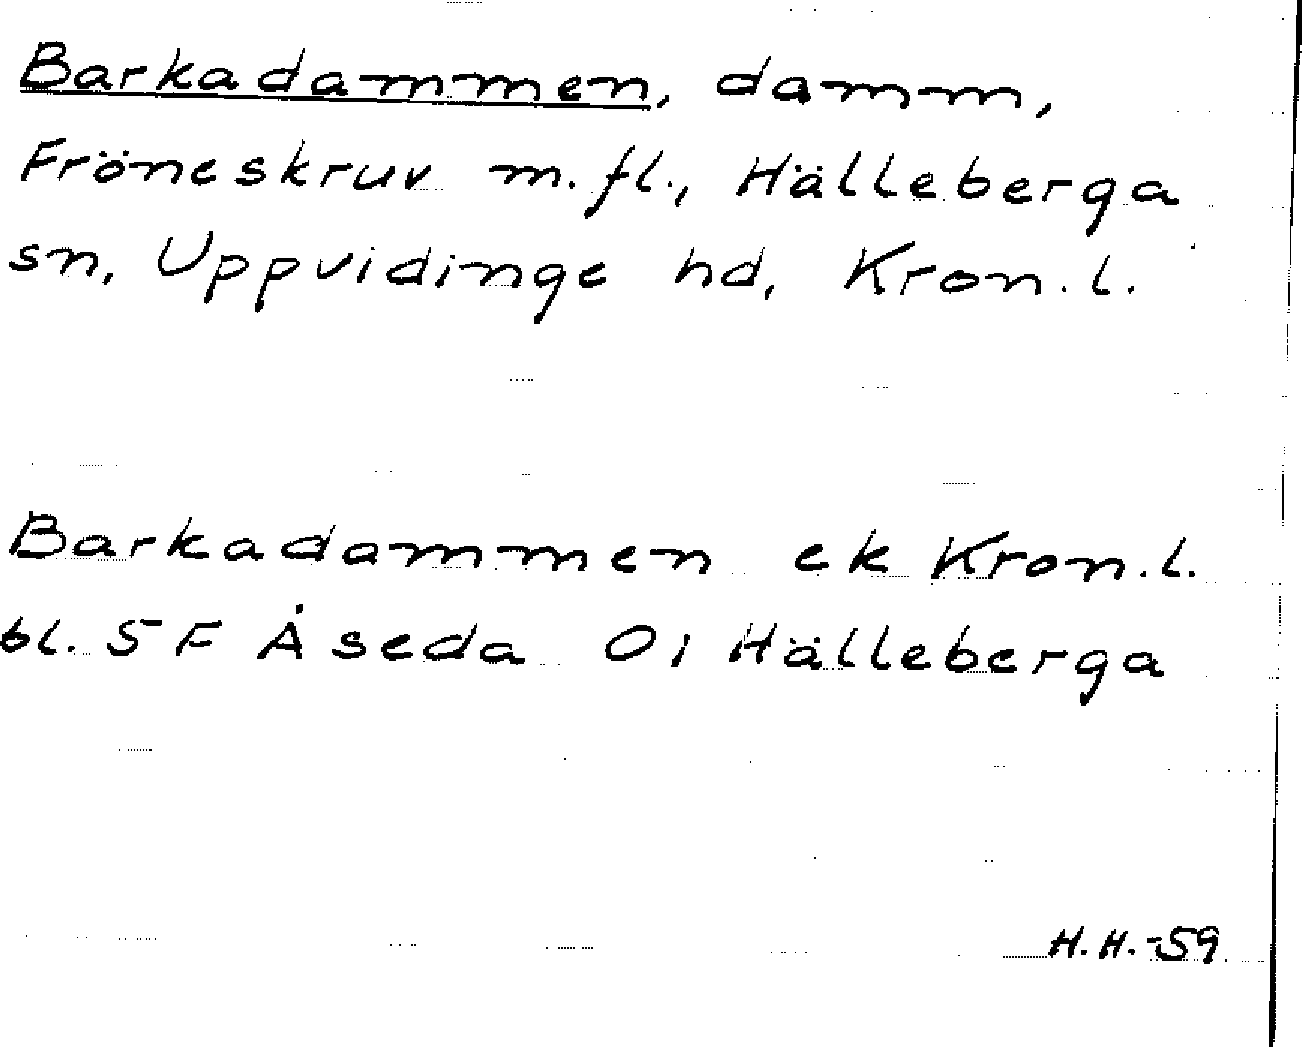 Barkadammen, damm,
Fröneskruv m.fl., Hälleberga
sn, Uppvidinge hd, Kron.l.
Barkadammen ek Kron.l.
bl. 5 F Åseda Oi Hälleberga
H.H.-59